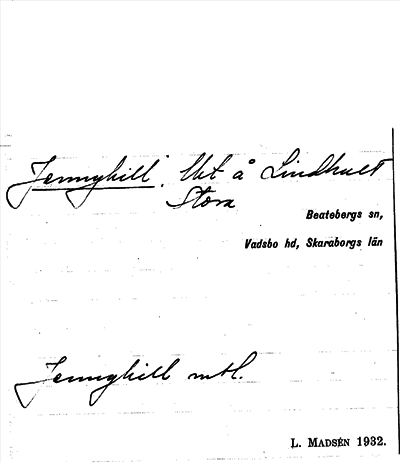 Jennyhill. Uht å Lindhult
Stora
Beatebergs sn,
Vadsbo hd, Skaraborgs län
Jennyhill mtl.
L. MADSÉN 1932.